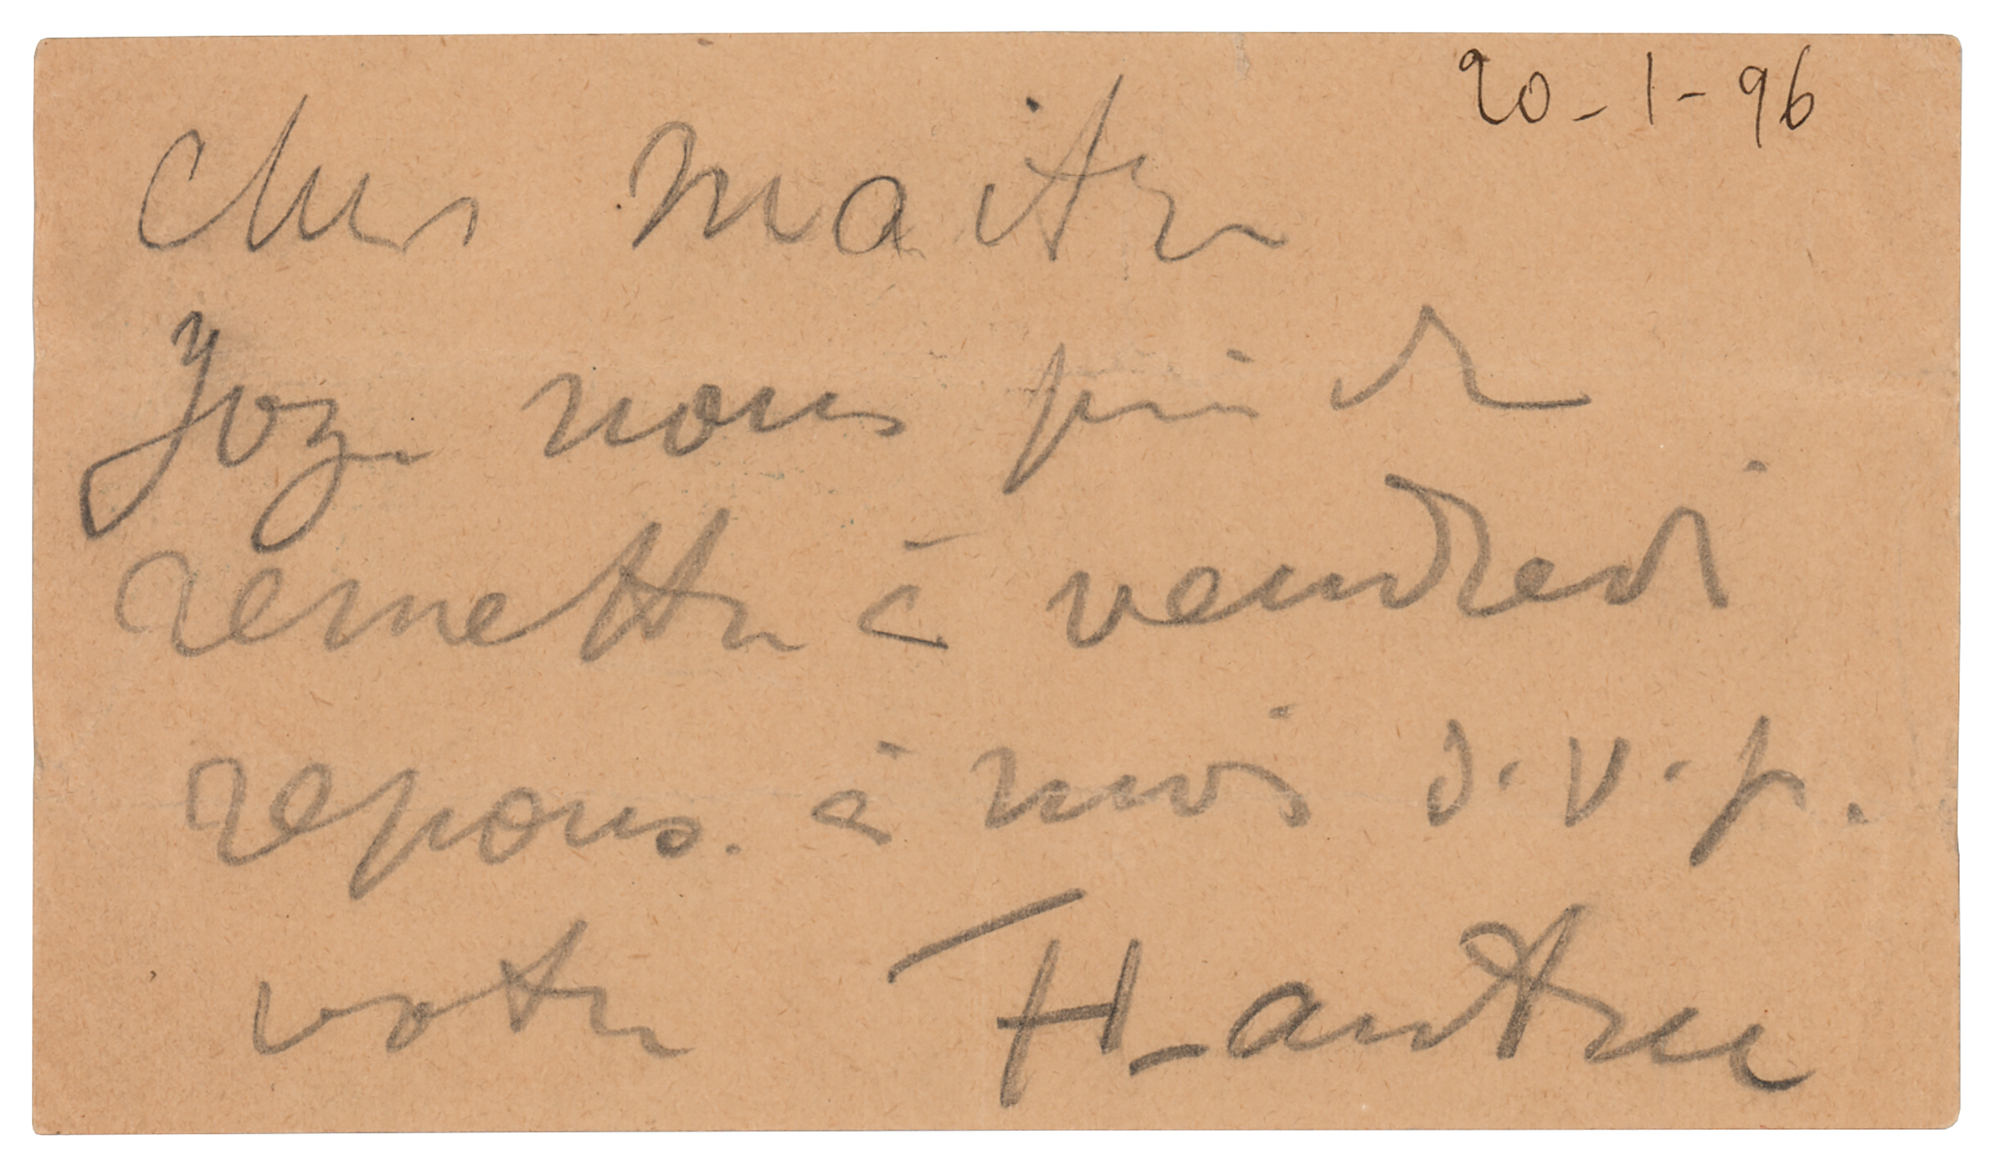 20-1-96
Cher Maitre
Joze nous prie de
remettre à vendredi
repons. à moi s.v.p.
votre HTLautrec